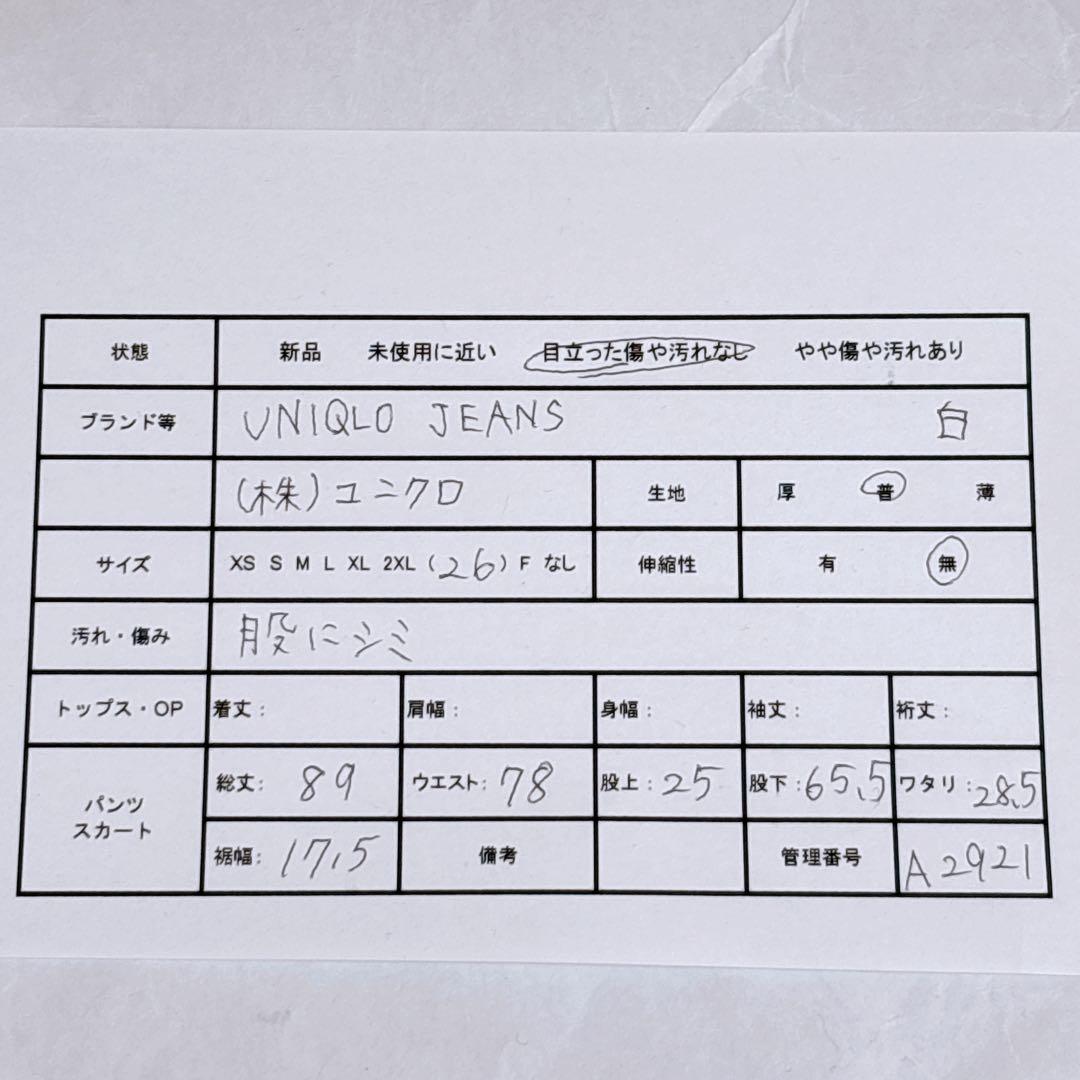 状態 新品 未使用に近い 目立った傷や汚れなし やや傷や汚れあり
ブランド等 UNIQLO JEANS 白
(株)ユニクロ 生地 厚 普 薄
サイズ XS S M L XL 2XL (26) F なし 伸縮性 有 無
汚れ・傷み 股にシミ
トップス・OP 着丈: 肩幅: 身幅: 袖丈: 裄丈:
パンツ
スカート
総丈: 89 ウエスト: 78 股上: 25 股下: 65.5 ワタリ: 28.5
裾幅: 17.5 備考 管理番号 A2921